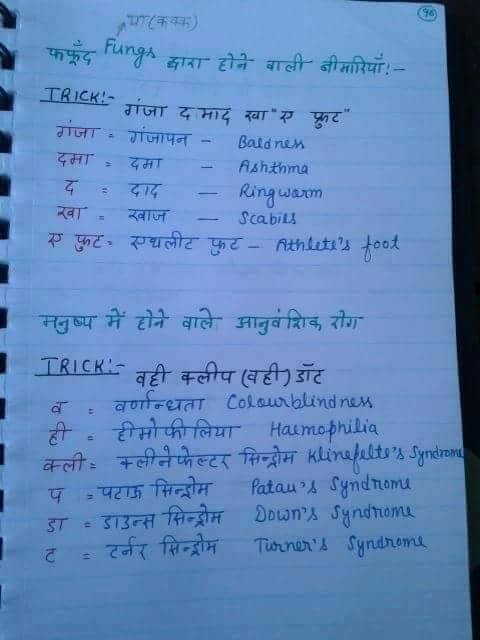 या (कवक)
96
फफूँद Fungs द्वारा होने वाली बीमारियाँ:-
TRICK:-
गंजा द माद खा "ए फुट"
गंजा = गंजापन - Baldness
दमा = दमा - Ashthma
द = दाद - Ringwarm
खा = खाज - Scabies
ए फुट = एथलीट फुट - Athlete's foot
मनुष्य में होने वाले आनुवंशिक रोग
TRICK:- वही क्लीप (वही) डॉट
व = वर्णान्धता Colourblindness
ही = हीमोफीलिया Haemophilia
क्ली = क्लीनेफेल्टर सिन्ड्रोम Klinefelte's Syndrome
प = पटाऊ सिन्ड्रोम Patau's Syndrome
डा = डाउन्स सिन्ड्रोम Down's Syndrome
ट = टर्नर सिन्ड्रोम Turner's Syndrome